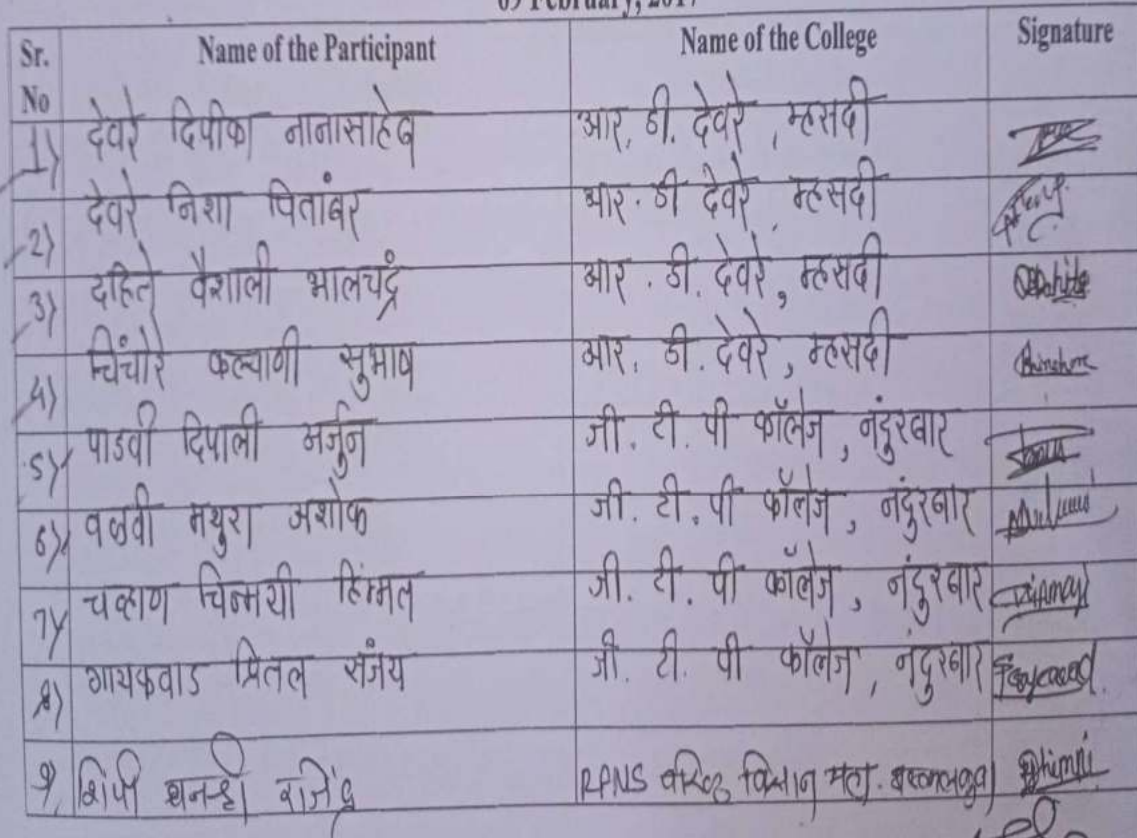 09 February, 2017
Sr. No Name of the Participant Name of the College Signature
1) देवरे दिपीका नानासाहेब आर. डी. देवरे, म्हसदी
2) देवरे निशा पितांबर आर. डी देवरे म्हसदी
3) दहिते वैशाली भालचंद्र आर. डी. देवरे, म्हसदी
4) चिंचोरे कल्याणी सुभाष आर. डी. देवरे, म्हसदी
5) पाडवी दिपाली अर्जुन जी. टी. पी कॉलेज, नंदुरबार
6) वळवी मथुरा अशोक जी. टी. पी कॉलेज, नंदुरबार
7) चव्हाण चिन्मयी हिंम्मत जी. टी. पी कॉलेज, नंदुरबार
8) गायकवाड प्रितल संजय जी. टी. पी कॉलेज, नंदुरबार
9) शिंपी धनश्री राजेंद्र RPNS